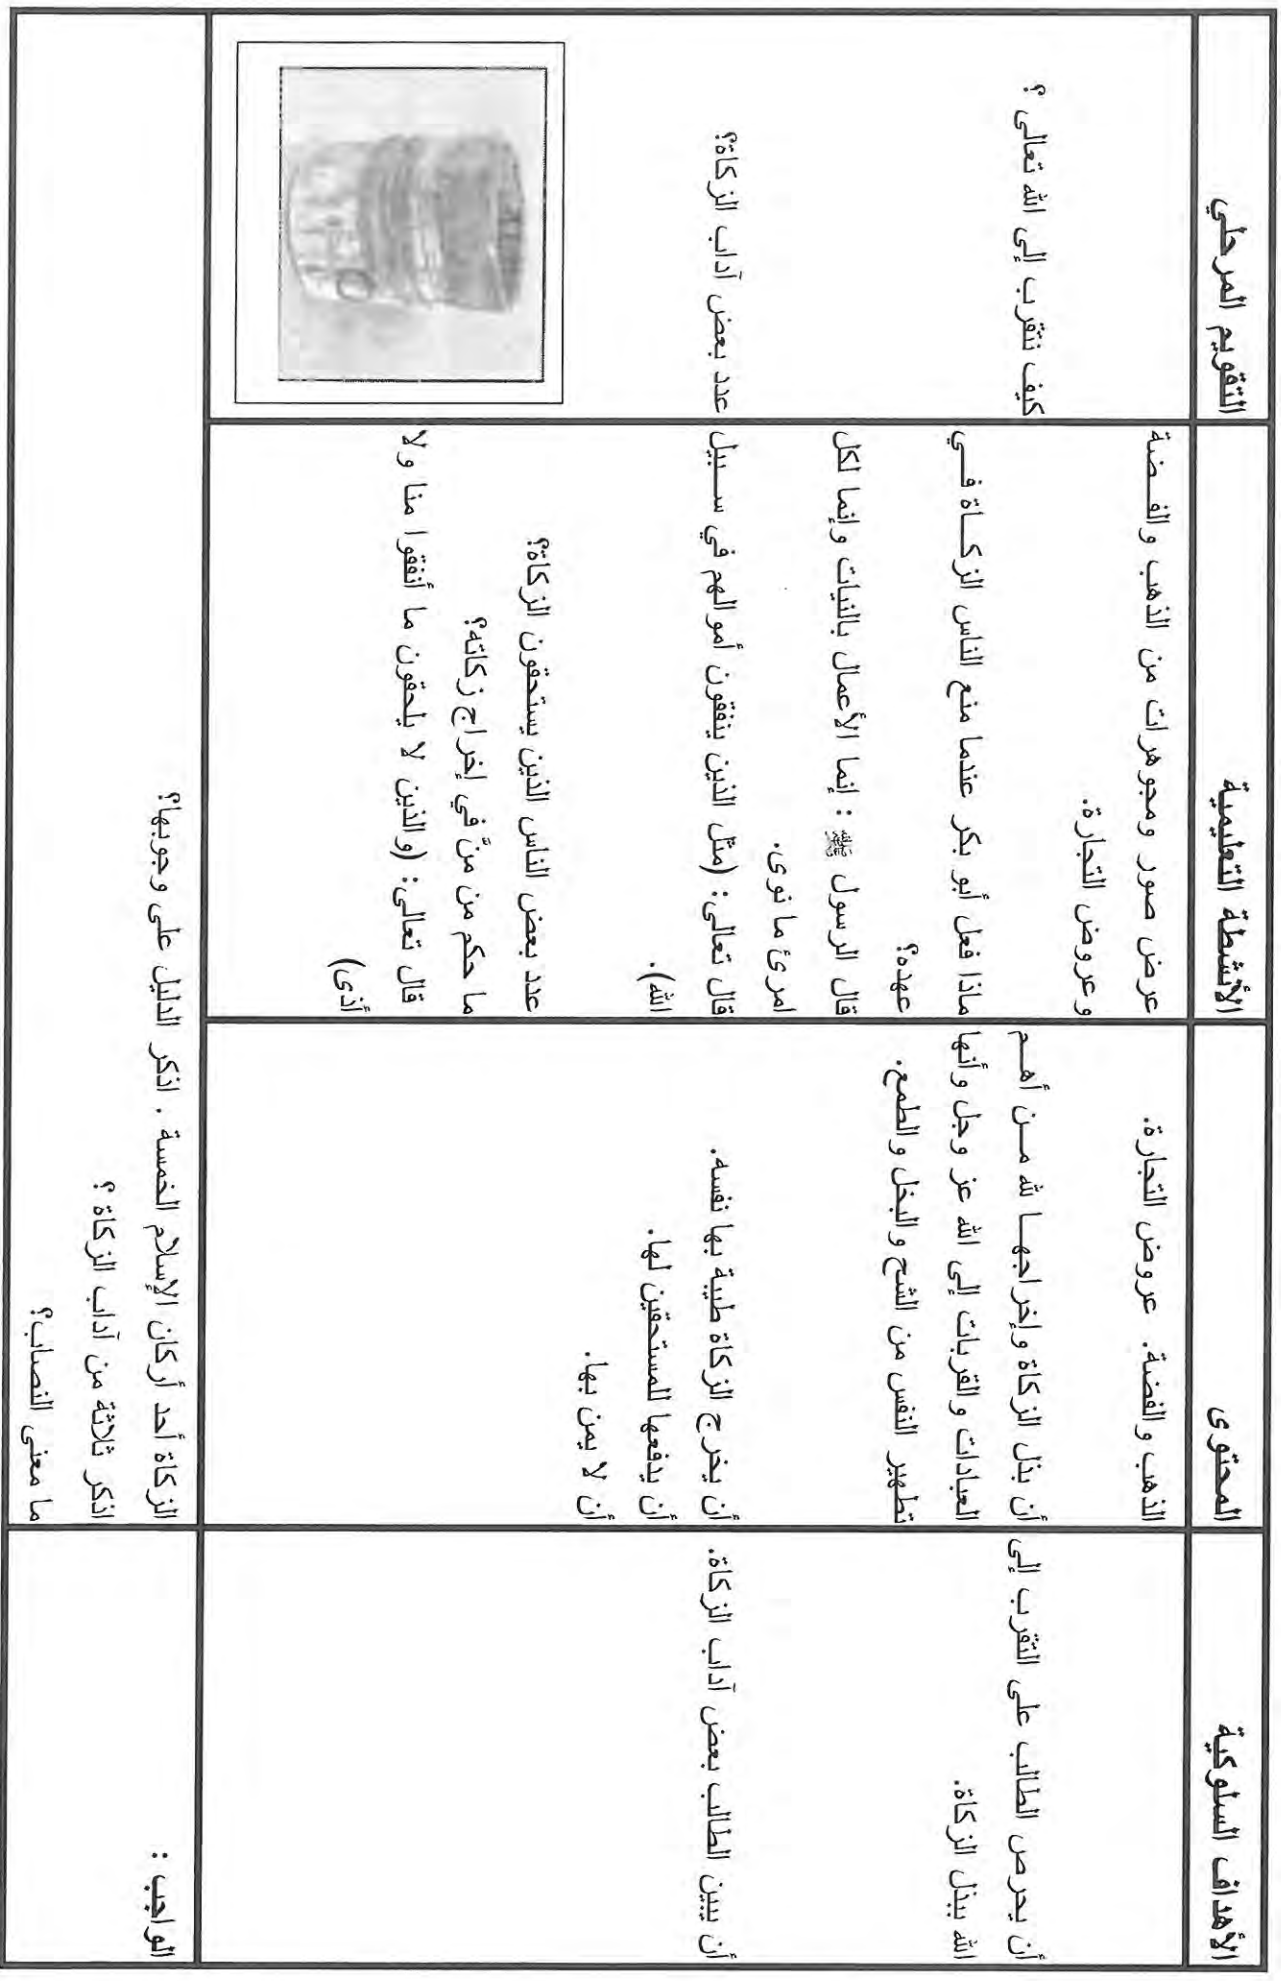 الأهداف السلوكية
المحتوى
الأنشطة التعليمية
التقويم المرحلي
الذهب والفضة. عروض التجارة.
عرض صور ومجوهرات من الذهب والفضة
وعروض التجارة.
أن يحرص الطالب على التقرب إلى
الله ببذل الزكاة.
أن بذل الزكاة وإخراجها لله من أهم
العبادات والقربات إلى الله عز وجل وأنها
تطهير النفس من الشح والبخل والطمع.
ماذا فعل أبو بكر عندما منع الناس الزكاة في
عهده؟
قال الرسول ﷺ : إنما الأعمال بالنيات وإنما لكل
امرئ ما نوى.
كيف نتقرب إلى الله تعالى ؟
أن يبين الطالب بعض آداب الزكاة.
أن يخرج الزكاة طيبة بها نفسه.
أن يدفعها للمستحقين لها.
أن لا يمن بها.
قال تعالى: (مثل الذين ينفقون أموالهم في سبيل
الله).
عدد بعض الناس الذين يستحقون الزكاة؟
ما حكم من منَّ في إخراج زكاته؟
قال تعالى: (والذين لا يلحقون ما أنفقوا منا ولا
أذى)
عدد بعض آداب الزكاة؟
الواجب :
الزكاة أحد أركان الإسلام الخمسة . اذكر الدليل على وجوبها؟
اذكر ثلاثة من آداب الزكاة ؟
ما معنى النصاب؟